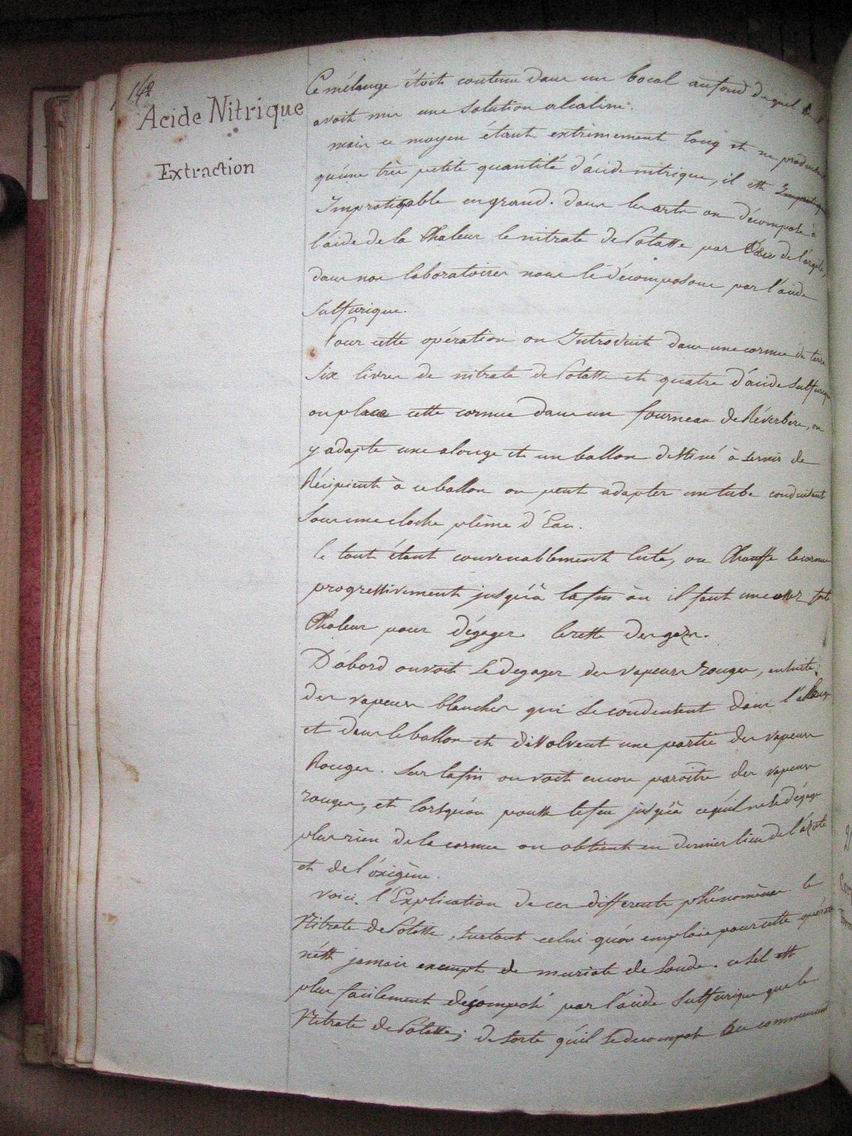 142
Acide Nitrique
Extraction
Ce mélange étoit contenu dans un bocal au fond duquel
avoit mis une solution alcaline.
mais ce moyen étant extrimement long et ne produisant
qu'une très petite quantité d'acide nitrique, il est
Impratiquable en grand. dans les arts on décompose à
l'aide de la Chaleur le nitrate de Potasse par de l'argile,
dans nos laboratoires nous le décomposons par l'acide
Sulfurique.
Pour cette opération on Introduit dans une cornue de terre
Six livres de nitrate de Potasse et quatre d'acide Sulfurique
on place cette cornue dans un fourneau de Réverbère, on
y adapte une alonge et un ballon destiné à servir de
Récipient à ce ballon on peut adapter un tube conduisant
Sous une cloche pleine d'Eau.
le tout étant convenablement luté, on Chauffe la cornue
progressivement jusqu'à la fin où il faut une assez forte
Chaleur pour dégager le reste des gazs.
D'abord on voit se degager des vapeurs rouges, ensuite
des vapeurs blanches qui se condensent dans l'
et dans le ballon et dissolvent une partie des vapeurs
Rouges. Sur la fin on voit encore paroitre des vapeurs
rouges, et lorsqu'on pousse le feu jusqu'à ce qu'il ne se dégage
plus rien de la cornue on obtient en dernier lieu de l'azote
et de l'oxigène.
Voici l'Explication de ces differents phénomènes le
Nitrate de Potasse, surtout celui qu'on emploie pour cette opération
n'est jamais exempt de muriate de Soude. ce sel est
plus facilement décomposé par l'acide Sulfurique que le
Nitrate de Potasse; de sorte qu'il se decompose au commencement